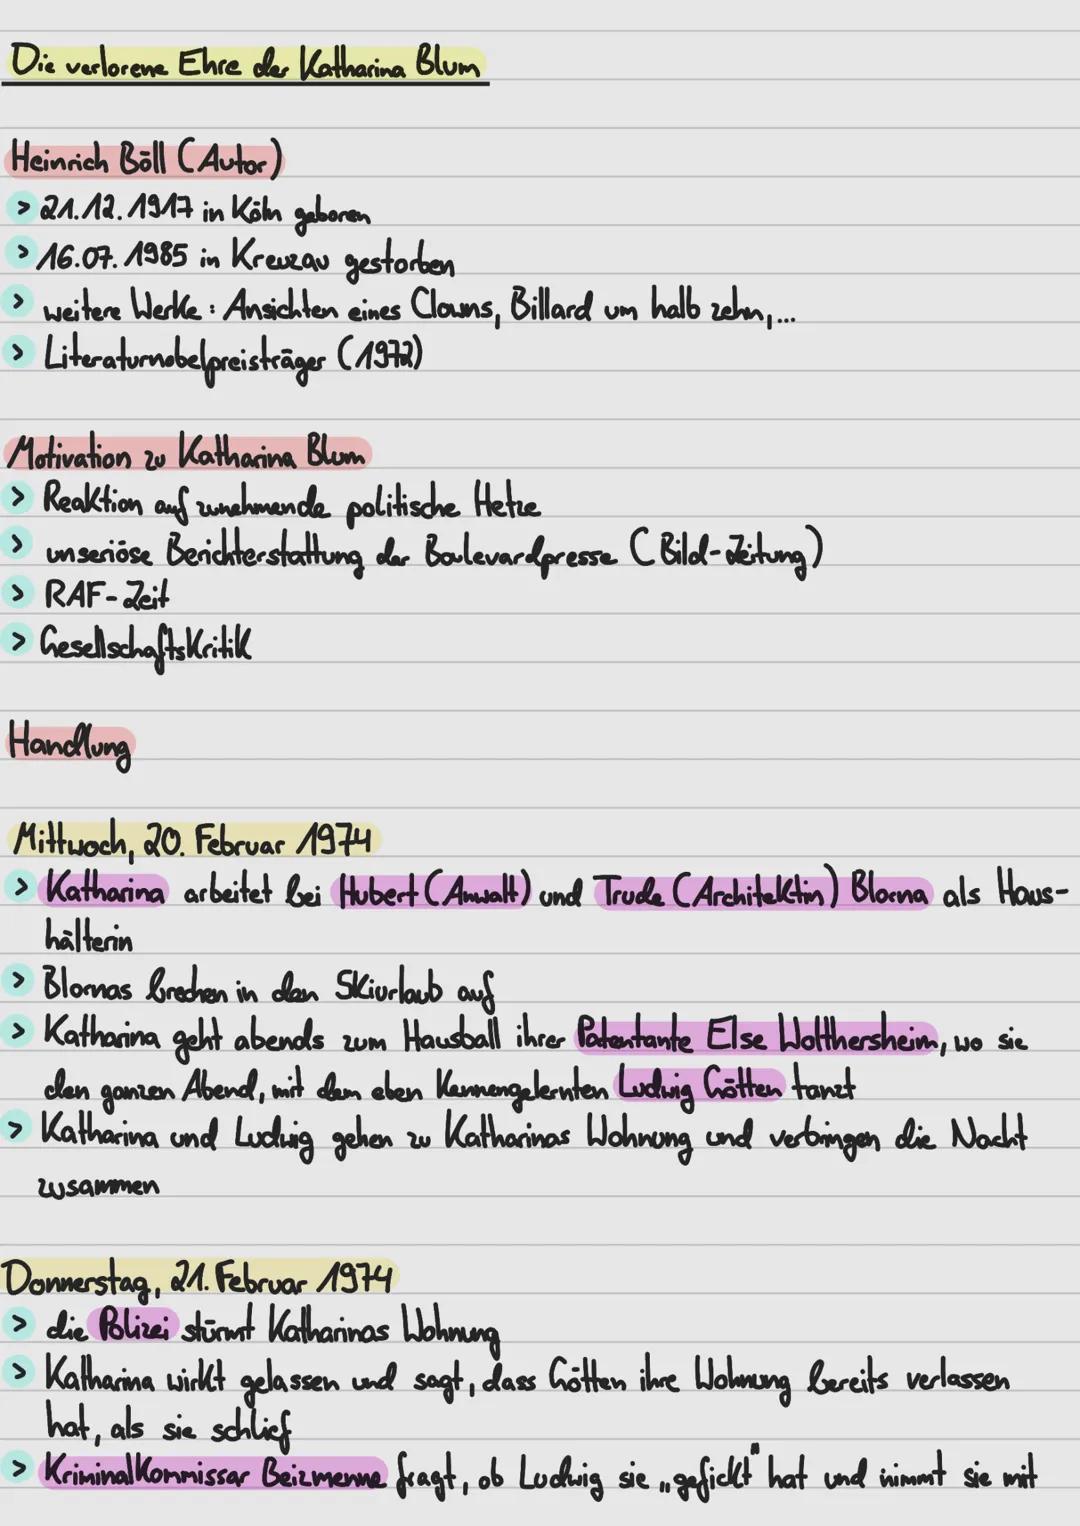 Die verlorene Ehre der Katharina Blum
Heinrich Böll (Autor)
> 21.12.1917 in Köln geboren
> 16.07.1985 in Kreuzau gestorben
> weitere Werke: Ansichten eines Clowns, Billard um halb zehn,...
> Literaturnobelpreisträger (1972)
Motivation zu Katharina Blum
> Reaktion auf zunehmende politische Hetze
> unseriöse Berichterstattung der Boulevardpresse (Bild-Zeitung)
> RAF-Zeit
> Gesellschaftskritik
Handlung
Mittwoch, 20. Februar 1974
> Katharina arbeitet bei Hubert (Anwalt) und Trude (Architektin) Blorna als Haus-
hälterin
> Blornas brechen in den Skiurlaub auf
> Katharina geht abends zum Hausball ihrer Patentante Else Wolthersheim, wo sie
den ganzen Abend, mit dem eben Kennengelernten Ludwig Götten tanzt
> Katharina und Ludwig gehen zu Katharinas Wohnung und verbringen die Nacht
zusammen
Donnerstag, 21. Februar 1974
> die Polizei stürmt Katharinas Wohnung
> Katharina wirkt gelassen und sagt, dass Götten ihre Wohnung bereits verlassen
hat, als sie schlief
> Kriminalkommissar Beizmenne fragt, ob Ludwig sie „gefickt" hat und nimmt sie mit